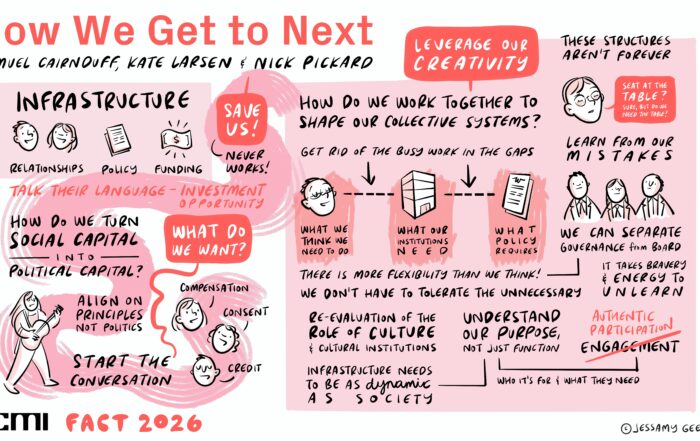 ow We Get to Next
MUEL CAIRNDUFF, KATE LARSEN & NICK PICKARD
INFRASTRUCTURE
RELATIONSHIPS
POLICY
FUNDING
SAVE
US!
NEVER
WORKS!
TALK THEIR LANGUAGE - INVESTMENT
OPPORTUNITY
HOW DO WE TURN
SOCIAL CAPITAL
INTO
POLITICAL CAPITAL?
WHAT DO
WE WANT?
ALIGN ON
PRINCIPLES
NOT POLITICS
START THE
CONVERSATION
COMPENSATION
CONSENT
CREDIT
LEVERAGE OUR
CREATIVITY
HOW DO WE WORK TOGETHER TO
SHAPE OUR COLLECTIVE SYSTEMS?
GET RID OF THE BUSY WORK IN THE GAPS
WHAT WE
THINK WE
NEED TO DO
WHAT OUR
INSTITUTIONS
NEED
WHAT
POLICY
REQUIRES
THERE IS MORE FLEXIBILITY THAN WE THINK!
WE DON'T HAVE TO TOLERATE THE UNNECESSARY
RE-EVALUATION OF THE
ROLE OF CULTURE
& CULTURAL INSTITUTIONS
INFRASTRUCTURE NEEDS
TO BE AS dynamic
AS SOCIETY
UNDERSTAND
OUR PURPOSE,
NOT JUST FUNCTION
WHO IT'S FOR & WHAT THEY NEED
THESE STRUCTURES
AREN'T FOREVER
SEAT AT THE
TABLE?
SURE, BUT DO WE
NEED THE TABLE!
LEARN FROM OUR
MISTAKES
WE CAN SEPARATE
GOVERNANCE from BOARD
IT TAKES BRAVERY
& ENERGY TO
UNLEARN
AUTHENTIC
PARTICIPATION
ENGAGEMENT
CMI FACT 2026
©JESSAMY GEE